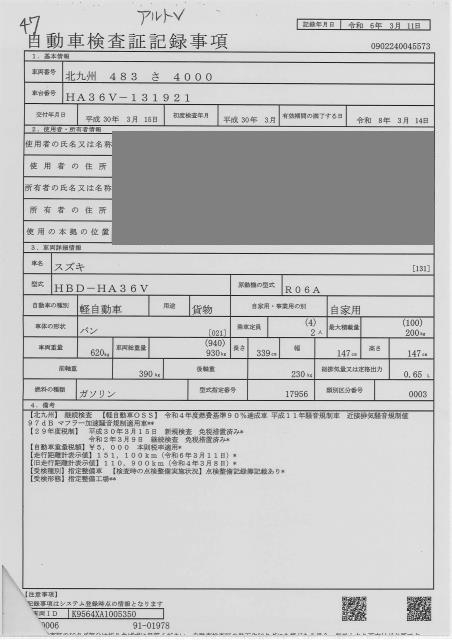 47
アルトV
記録年月日 令和 6年 3月 11日
自動車検査証記録事項
0902240045573
1. 基本情報
車両番号 北九州 483 さ 4000
車台番号 HA36V-131921
交付年月日 平成 30年 3月 15日 初度検査年月 平成 30年 3月 有効期間の満了する日 令和 8年 3月 14日
2. 使用者・所有者情報
使用者の氏名又は名称
使用者の住所
所有者の氏名又は名称
所有者の住所
使用の本拠の位置
3. 車両詳細情報
車名 スズキ [131]
型式 HBD-HA36V 原動機の型式 R06A
自動車の種別 軽自動車 用途 貨物 自家用・事業用の別 自家用
車体の形状 バン [021] 乗車定員 (4) 2人 最大積載量 (100) 200kg
車両重量 620kg 車両総重量 (940) 930kg 長さ 339cm 幅 147cm 高さ 147cm
前軸重 390kg 後軸重 230kg 総排気量又は定格出力 0.65 L
燃料の種類 ガソリン 型式指定番号 17956 類別区分番号 0003
4. 備考
【北九州】 継続検査 【軽自動車OSS】 令和4年度燃費基準90%達成車 平成11年騒音規制車 近接排気騒音規制値
97dB マフラー加速騒音規制適用車**
【29年度税制】 平成30年3月15日 新規検査 免税措置済み*
令和2年3月9日 継続検査 免税措置済み*
【自動車重量税額】¥5,000 本則税率適用*
【走行距離計表示値】151,100km（令和6年3月11日）*
【旧走行距離計表示値】110,900km（令和4年3月8日）*
【受検種別】指定整備車 【検査時の点検整備実施状況】点検整備記録簿記載あり*
【受検形態】指定整備工場**
【注意事項】
記録事項はシステム登録時点の情報となります
車両ID K9564XA1005350
0006 91-01978